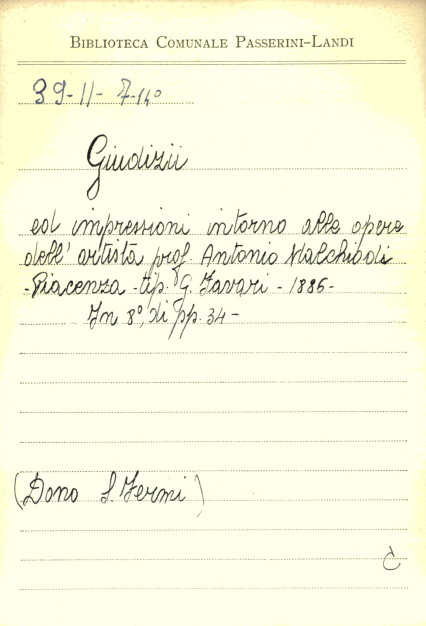 BIBLIOTECA COMUNALE PASSERINI-LANDI
39-II-7-14°
Giudizii
ed impressioni intorno alle opere
dell'artista prof. Antonio Malchiodi
-Piacenza - tip. G. Favari - 1886-
In 8°, di pp. 34-
(Dono S. Fermi)
C